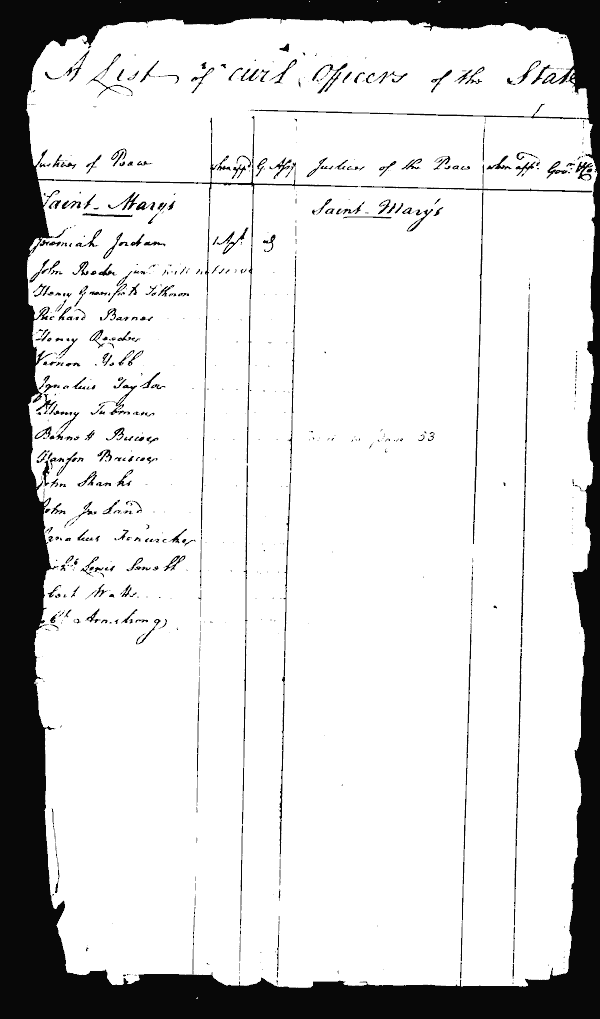 A List of Civil Officers of the State
Justices of Peace when app.d G. Ass.y Justices of the Peace when app.d Gov.r
Saint-Mary's Saint-Mary's
Jeremiah Jordan
John Reeder jun.r will not serve
Henry Greenfield Sothoron
Richard Barnes
Henry Reeder
Vernon Hebb
Ignatius Taylor
Henry Tubman
Bennett Briscoe page 53
Hanson Briscoe
John Shanks
John Land
Ignatius Fenwick
Lewis Sewall
Watts
Armstrong